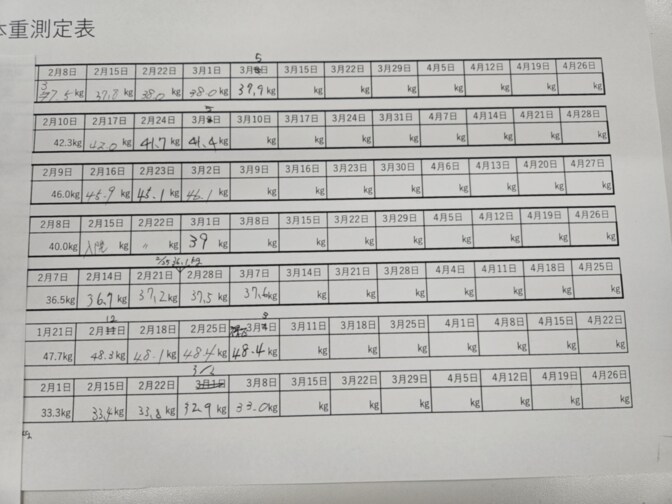 体重測定表
5
2月8日 2月15日 2月22日 3月1日 3月 3月15日 3月22日 3月29日 4月5日 4月12日 4月19日 4月26日
37.5kg 37.8kg 38.0kg 38.0kg 37.9kg kg kg kg kg kg kg kg
2月10日 2月17日 2月24日 3月日 3月10日 3月17日 3月24日 3月31日 4月7日 4月14日 4月21日 4月28日
42.3kg 42.0kg 41.7kg 41.4kg kg kg kg kg kg kg kg kg
2月9日 2月16日 2月23日 3月2日 3月9日 3月16日 3月23日 3月30日 4月6日 4月13日 4月20日 4月27日
46.0kg 45.9kg 45.1kg 46.1kg kg kg kg kg kg kg kg kg
2月8日 2月15日 2月22日 3月1日 3月8日 3月15日 3月22日 3月29日 4月5日 4月12日 4月19日 4月26日
40.0kg 入院 kg 〃 kg 39 kg kg kg kg kg kg kg kg kg
36.1kg
2月7日 2月14日 2月21日 2月28日 3月7日 3月14日 3月21日 3月28日 4月4日 4月11日 4月18日 4月25日
36.5kg 36.7kg 37.2kg 37.5kg 37.6kg kg kg kg kg kg kg kg
12
1月21日 2月11日 2月18日 2月25日 3月4日 3月11日 3月18日 3月25日 4月1日 4月8日 4月15日 4月22日
47.7kg 48.3kg 48.1kg 48.4kg 48.4kg kg kg kg kg kg kg kg
2月1日 2月15日 2月22日 3月1日 3月8日 3月15日 3月22日 3月29日 4月5日 4月12日 4月19日 4月26日
33.3kg 33.4kg 33.8kg 32.9kg 33.0kg kg kg kg kg kg kg kg